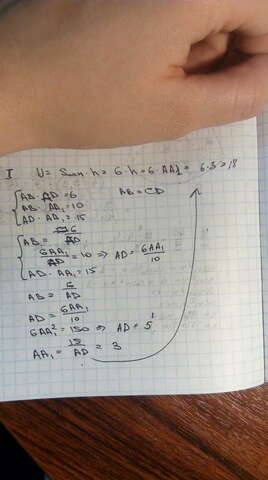 I V = Sосн · h = 6 · h = 6 · AA₁ = 6 · 3 = 18
AB · AD = 6 AB = CD
AB · AA₁ = 10
AD · AA₁ = 15
AB = 6/AD
6AA₁/AD = 10 ⇒ AD = 6AA₁/10
AD · AA₁ = 15
AB = 6/AD
AD = 6AA₁/10
6AA₁² = 150 ⇒ AD = 5
AA₁ = 15/AD = 3